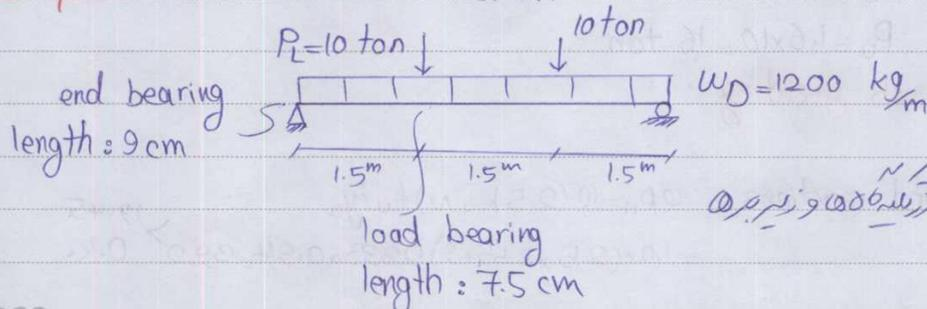 P_L=10 ton
10 ton
end bearing
length: 9 cm
W_D=1200 kg/m
1.5 m
1.5 m
1.5 m
load bearing
length: 7.5 cm